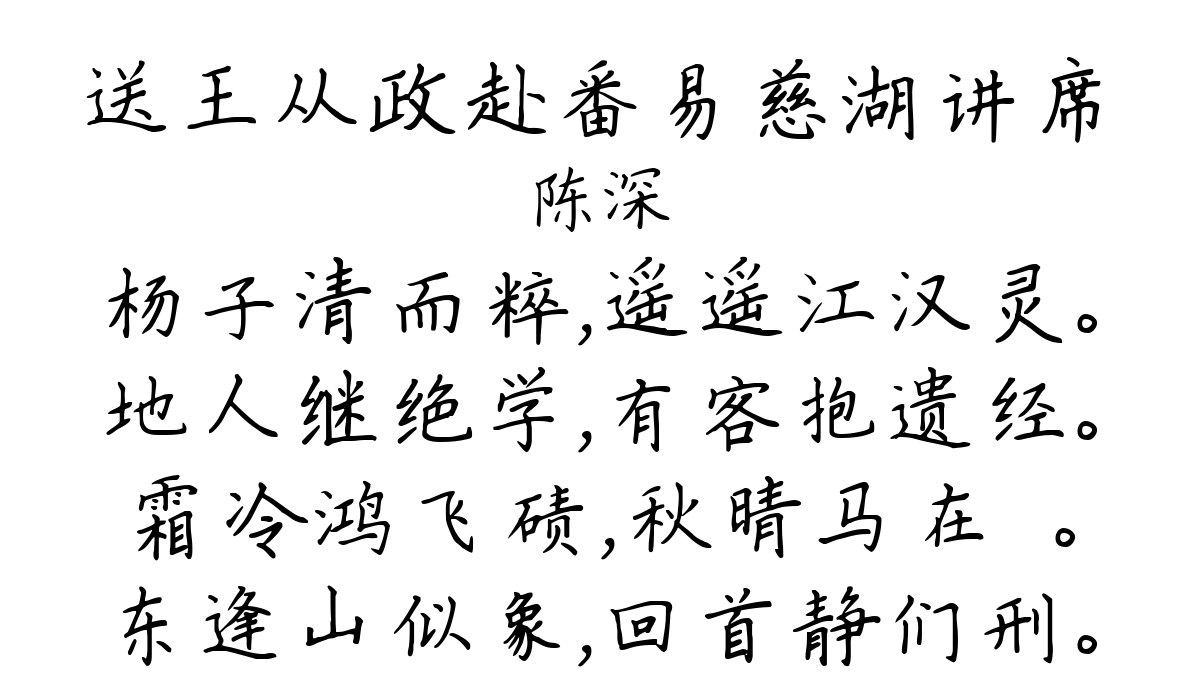 送王从政赴番易慈湖讲席
陈深
杨子清而粹,遥遥江汉灵。
地人继绝学,有客抱遗经。
霜冷鸿飞碛,秋晴马在 。
东逢山似象,回首静们刑。